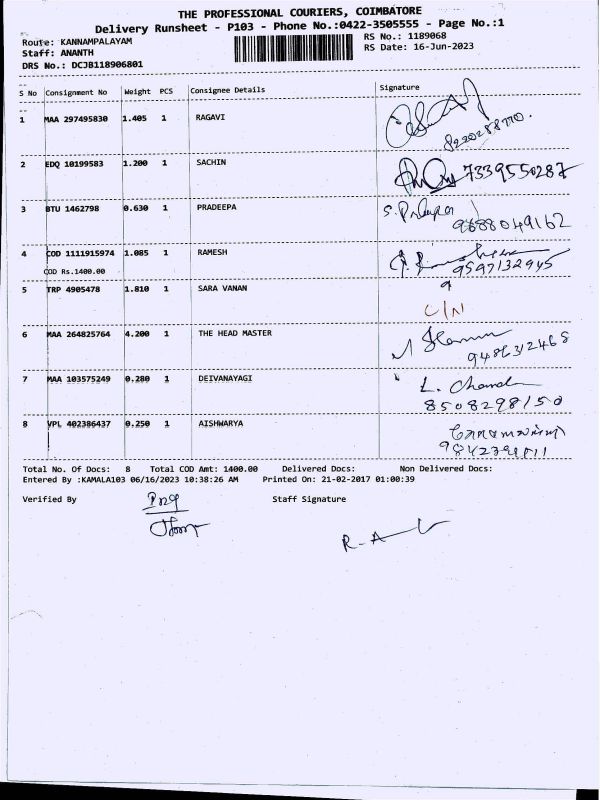 THE PROFESSIONAL COURIERS, COIMBATORE
Delivery Runsheet - P103 - Phone No.:0422-3505555 - Page No.:1
Route: KANNAMPALAYAM
RS No.: 1189068
Staff: ANANTH
RS Date: 16-Jun-2023
DRS No.: DCJB118906801
S No Consignment No Weight PCS Consignee Details Signature
1 MAA 297495830 1.405 1 RAGAVI
8220288770.
2 EDQ 10199583 1.200 1 SACHIN 7339550287
3 BTU 1462798 0.630 1 PRADEEPA
9688049162
4 COD 1111915974 1.085 1 RAMESH
COD Rs.1400.00 9597132945
5 TRP 4905478 1.810 1 SARA VANAN
C/N
6 MAA 264825764 4.200 1 THE HEAD MASTER
7 MAA 103575249 0.280 1 DEIVANAYAGI
8508298150
8 VPL 402386437 0.250 1 AISHWARYA
Total No. Of Docs: 8 Total COD Amt: 1400.00 Delivered Docs: Non Delivered Docs:
Entered By :KAMALA103 06/16/2023 10:38:26 AM Printed On: 21-02-2017 01:00:39
Verified By Staff Signature